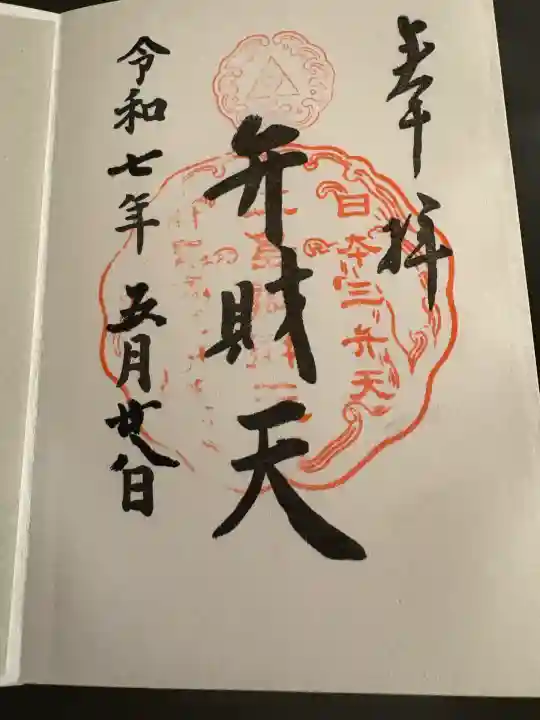 奉拝
日本三弁天
弁財天
令和七年 五月廿八日